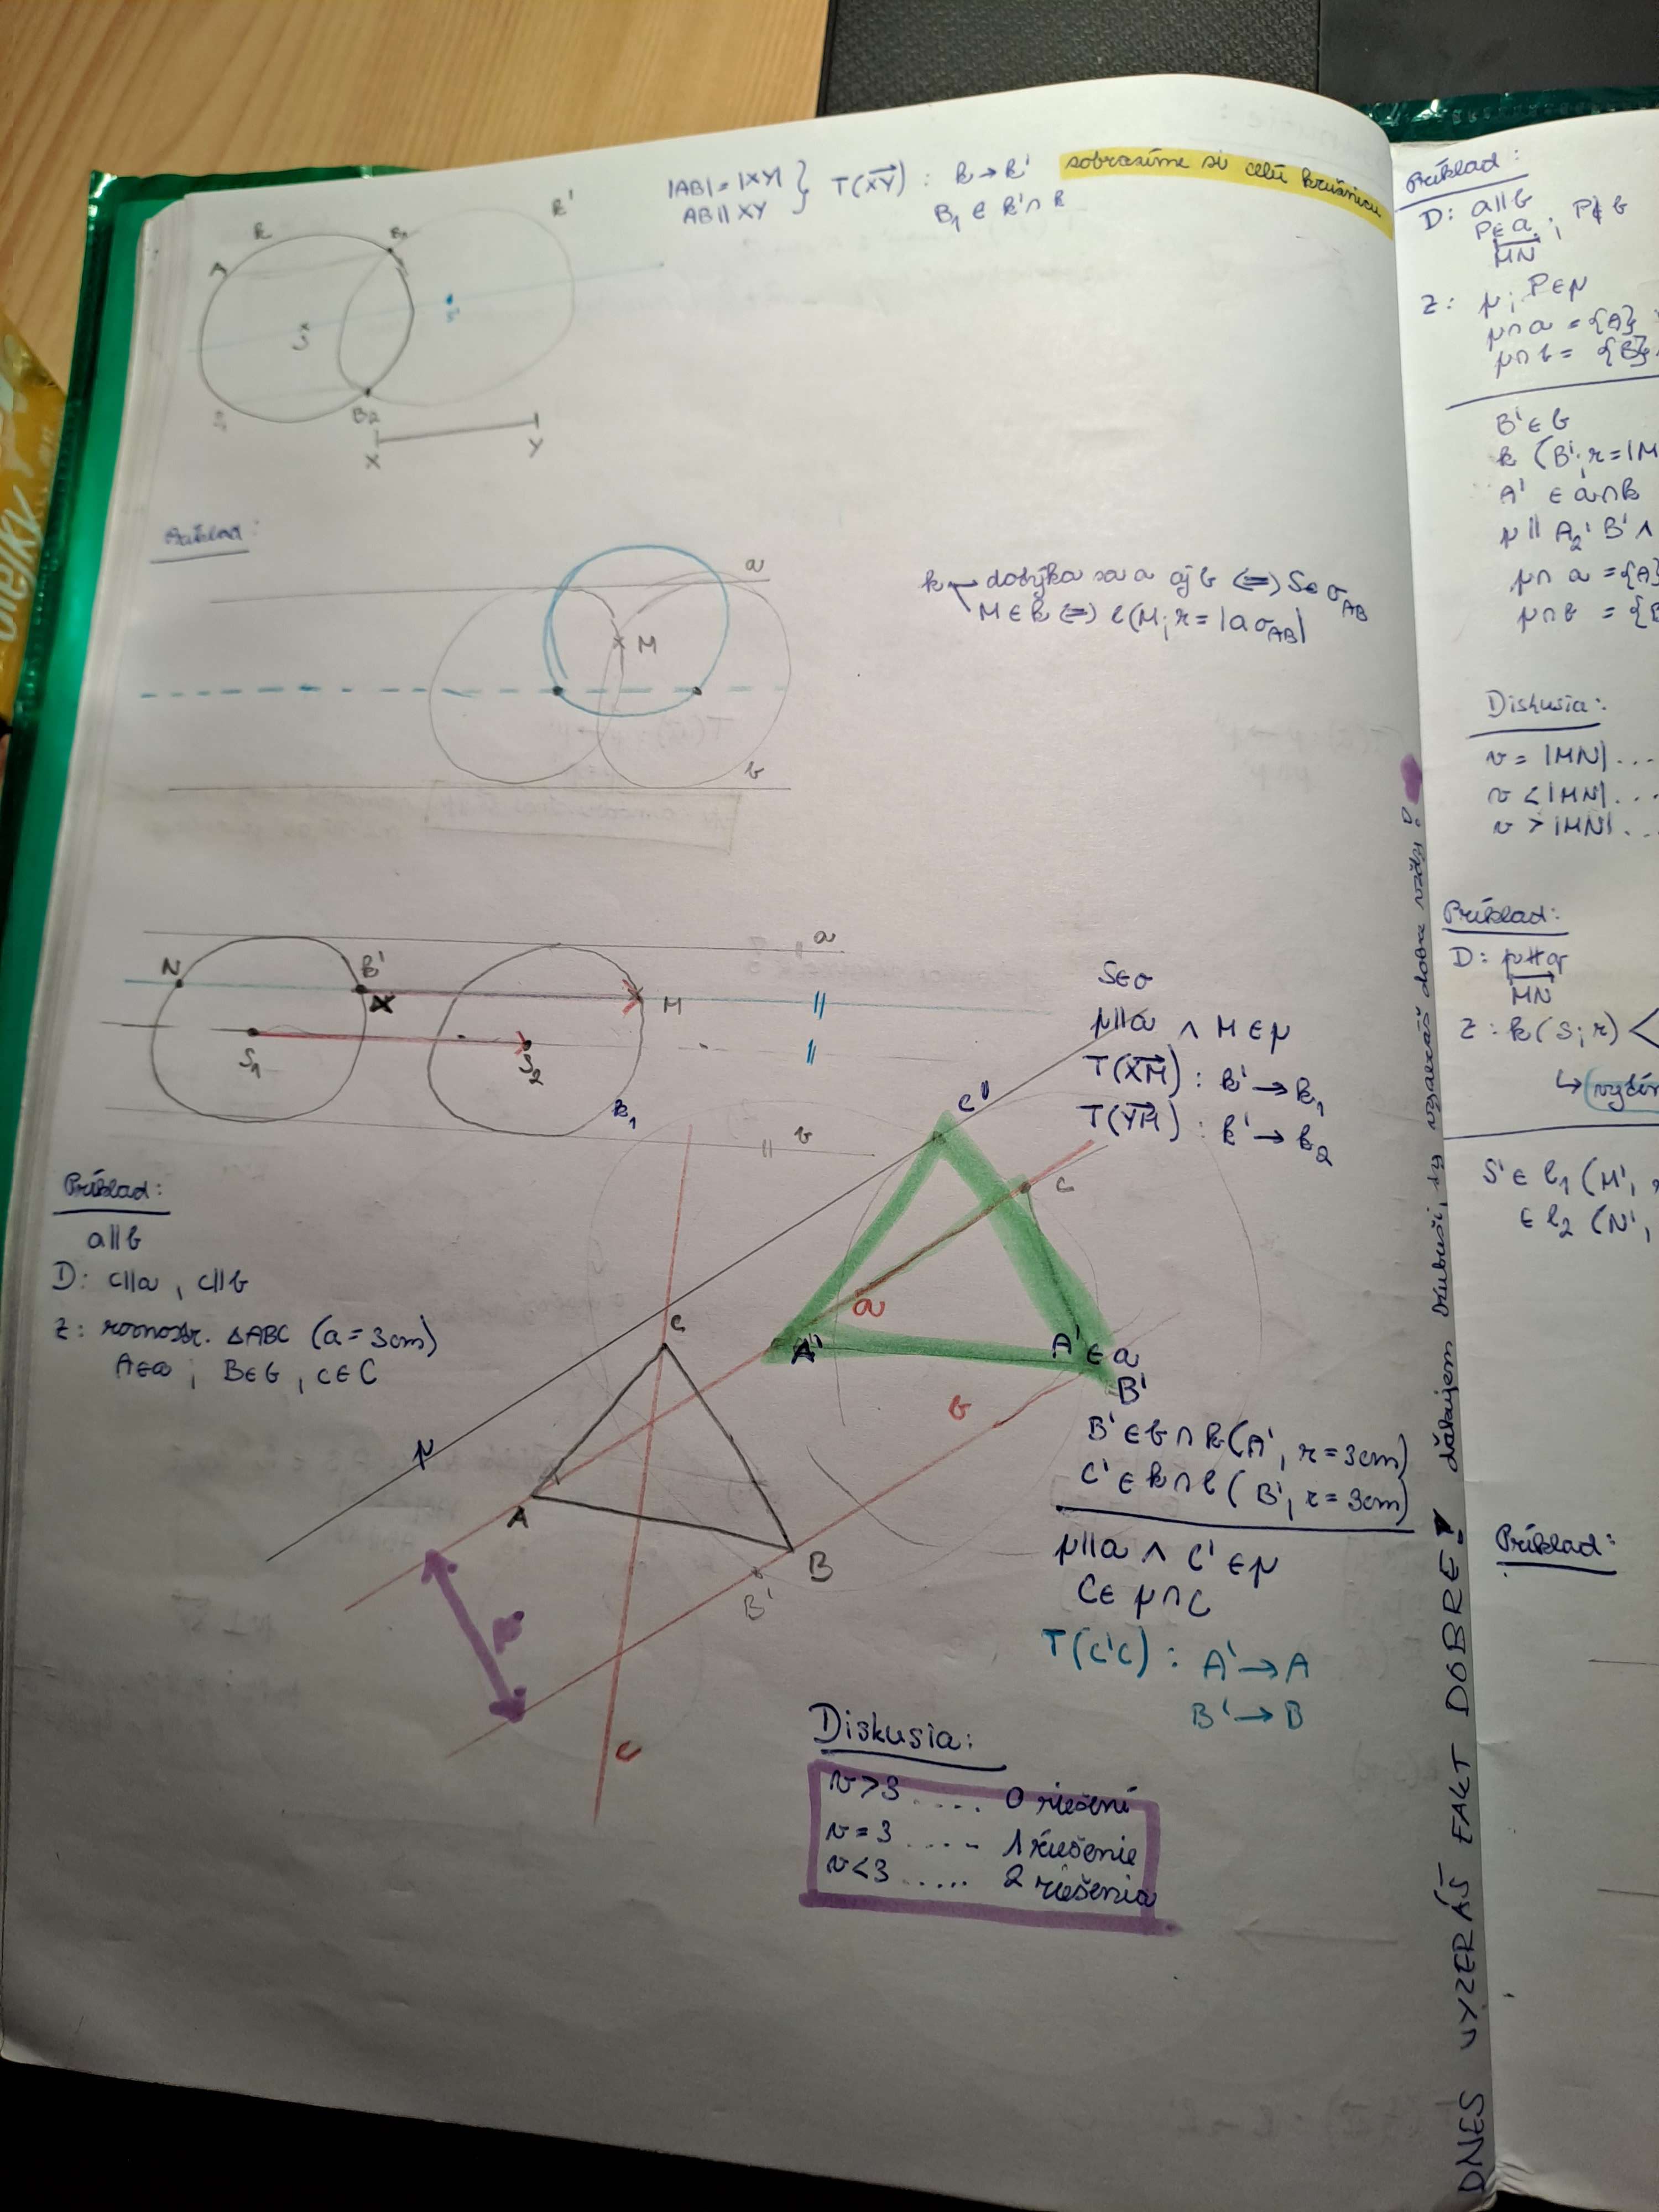 |AB| = |XY| } T(XY) : k → k'
AB || XY
B₁ ∈ k' ∩ k
zobrazíme si celú kružnicu
k
k'
A
B₁
S
S'
B₂
X
Y
Príklad:
a
M
b
k dotýka sa a aj b (=) S ∈ σ_AB
M ∈ k (=) l(M; r = |aσ_AB|
N
B'
X
M
a
S₁
S₂
k₁
b
S ∈ σ
p || a ∧ M ∈ p
T(XM) : k' → k₁
T(YM) : k' → k₂
Príklad:
a || b
D: c ∦ a , c ∦ b
Z: rovnostr. △ABC (a = 3cm)
A ∈ a ; B ∈ b , c ∈ C
C'
C
a
A'
b
p
C
A
B
B'
v
c
A' ∈ a
B'
B' ∈ b ∩ k (A', r = 3cm)
C' ∈ k ∩ l (B', r = 3cm)
p || a ∧ C' ∈ p
C ∈ p ∩ C
T(C'C) : A' → A
B' → B
Diskusia:
v > 3 ..... 0 riešení
v = 3 ..... 1 riešenie
v < 3 ..... 2 riešenia
DNES VYZERÁŠ FAKT DOBRE!
ďakujem Kubuši, ty vyzeráš dobre vždy!
Príklad:
D: a || b
P ∈ a ; P ∉ b
MN
Z: p; P ∈ p
p ∩ a = {A}
p ∩ b = {B}
B' ∈ b
k (B'; r = |M
A' ∈ a ∩ k
p || A₂' B' ∧
p ∩ a = {A}
p ∩ b = {B
Diskusia:
v = |MN| ...
v < |MN| ...
v > |MN| ...
Príklad:
D: p ∦ q
MN
Z: k (S; r) <
S' ∈ l₁ (M',
∈ l₂ (N',
Príklad: